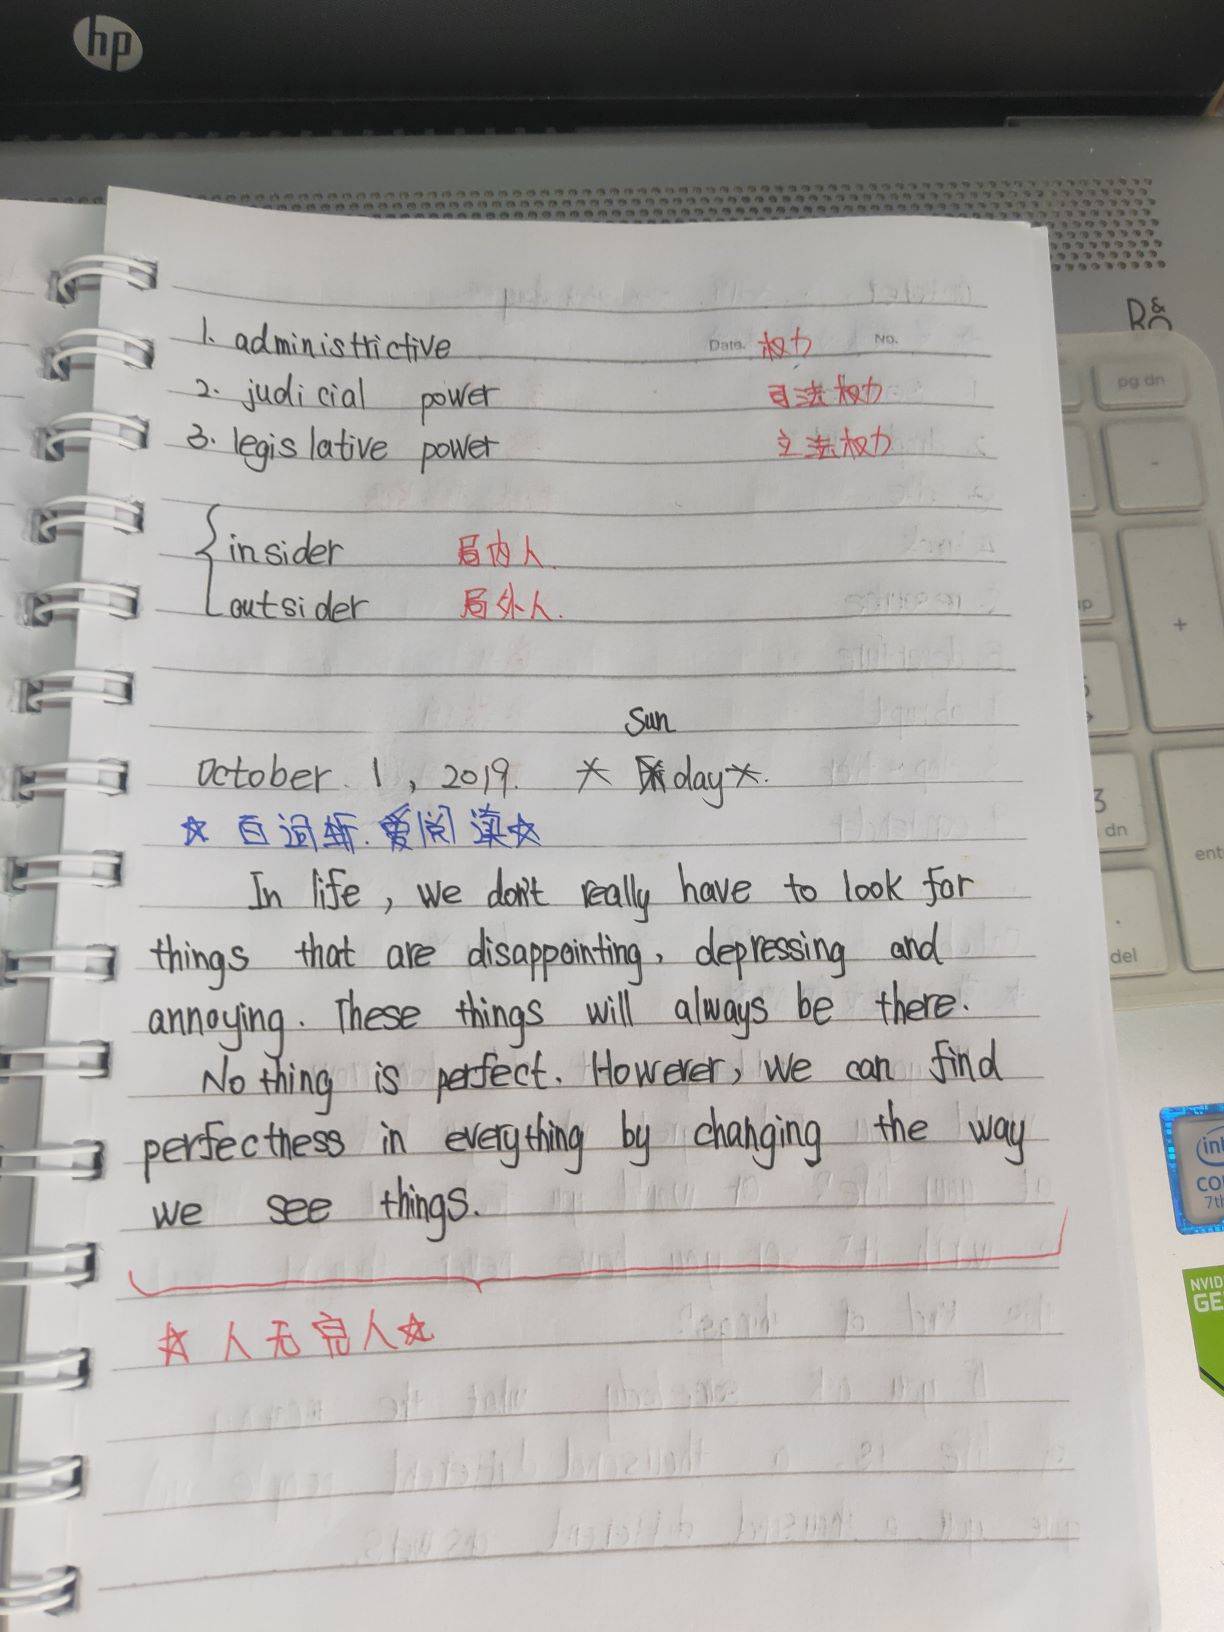 hp
1. administrictive Date. 权力 No.
2. judicial power 司法权力
3. legislative power 立法权力
insider 局内人.
outsider 局外人.
Sun
October 1, 2019. day
☆百词斩.爱阅读☆
In life, we don't really have to look for
things that are disappointing, depressing and
annoying. These things will always be there.
Nothing is perfect. However, we can find
perfectness in everything by changing the way
we see things.
☆人无完人☆
B&O
pg dn
-
+
3
dn
ent
.
del
int
CO
7th
NVID
GE